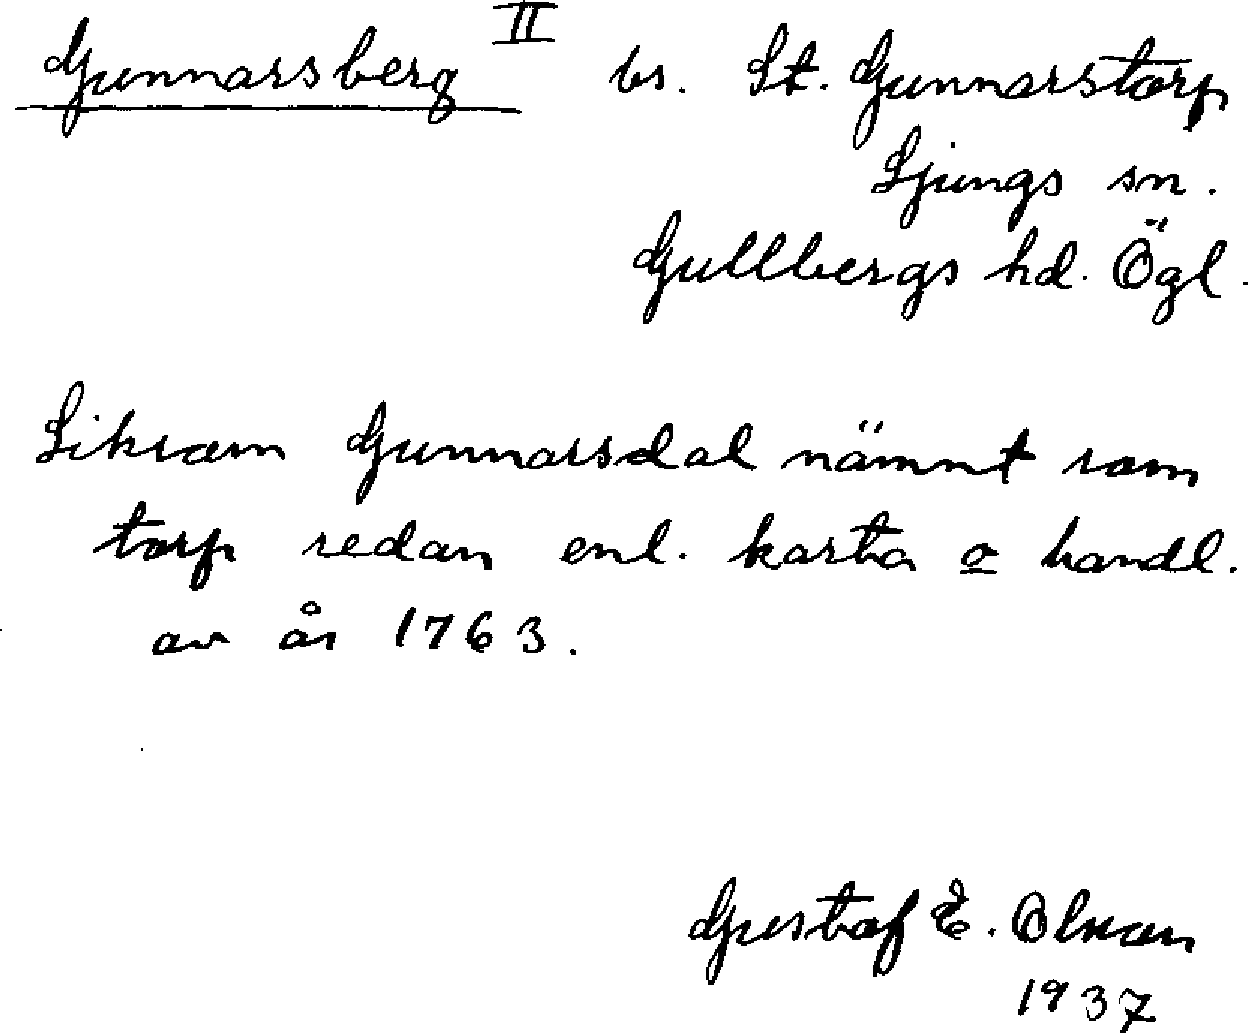 Gunnarsberg II bs. St. Gunnarstorp
Ljungs sn.
Gullbergs hd. Ögl.
Liksom Gunnarsdal nämnt som
torp redan enl. karta o handl.
av år 1763.
Gustaf E. Olson
1937